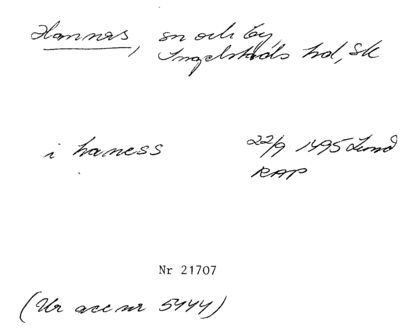 Hannas, sn och by,
Ingelstads hd, Sk
i haness 22/9 1495 Lund
RAP
Nr 21707
(Ur acc nr 5444)